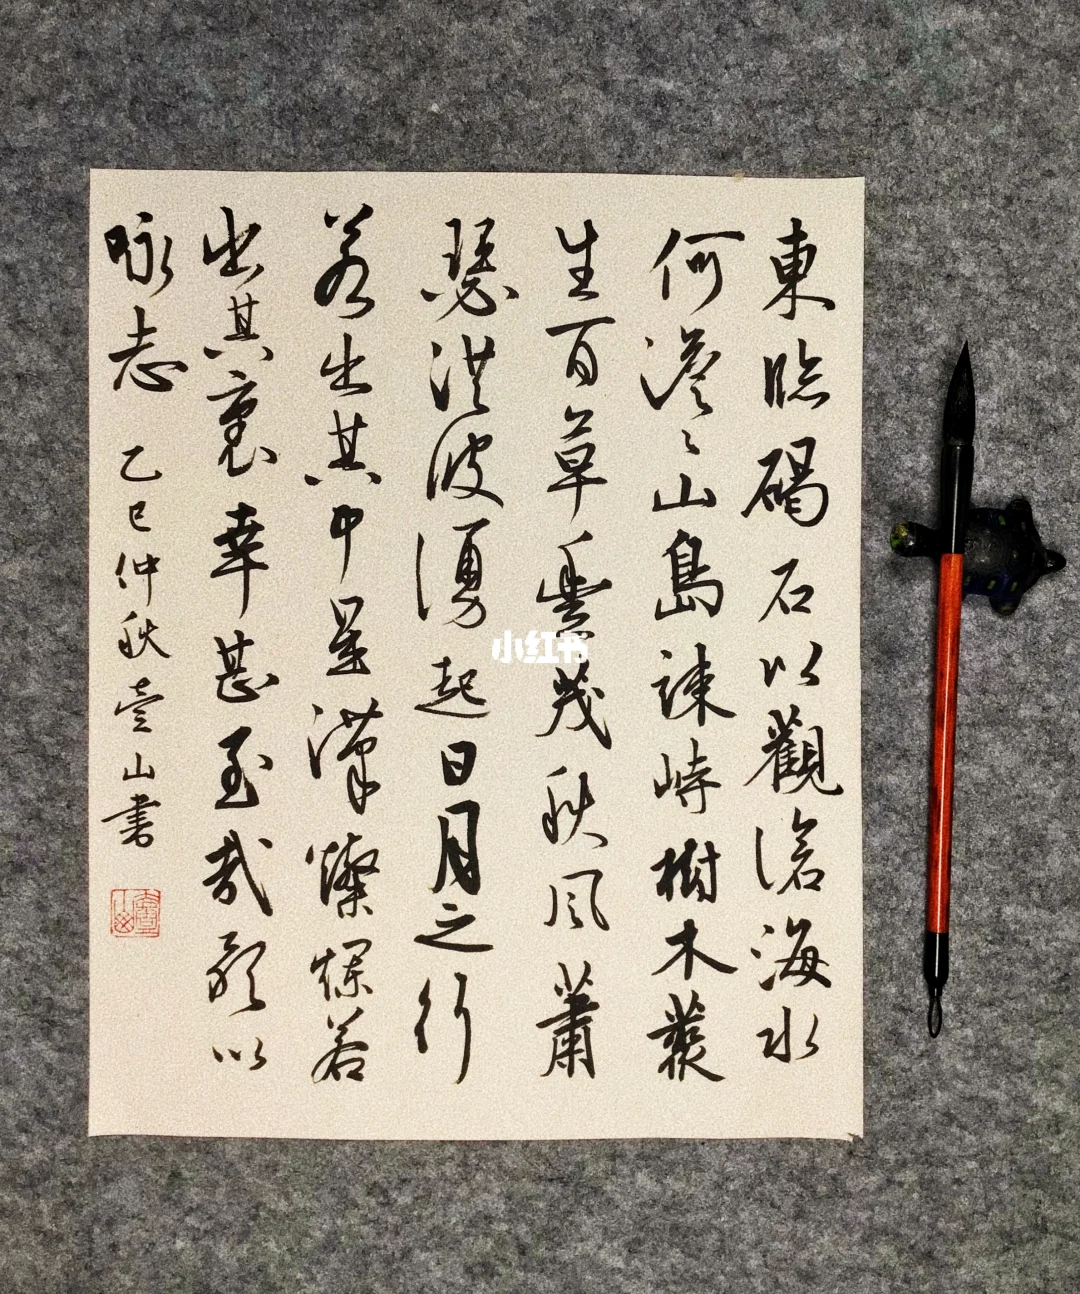 東臨碣石以觀滄海水
何澹〻山島竦峙樹木叢
生百草豐茂秋風蕭
瑟洪波湧起日月之行
若出其中星漢燦爛若
出其裏幸甚至哉歌以
咏志 乙巳仲秋壹山書
小红书